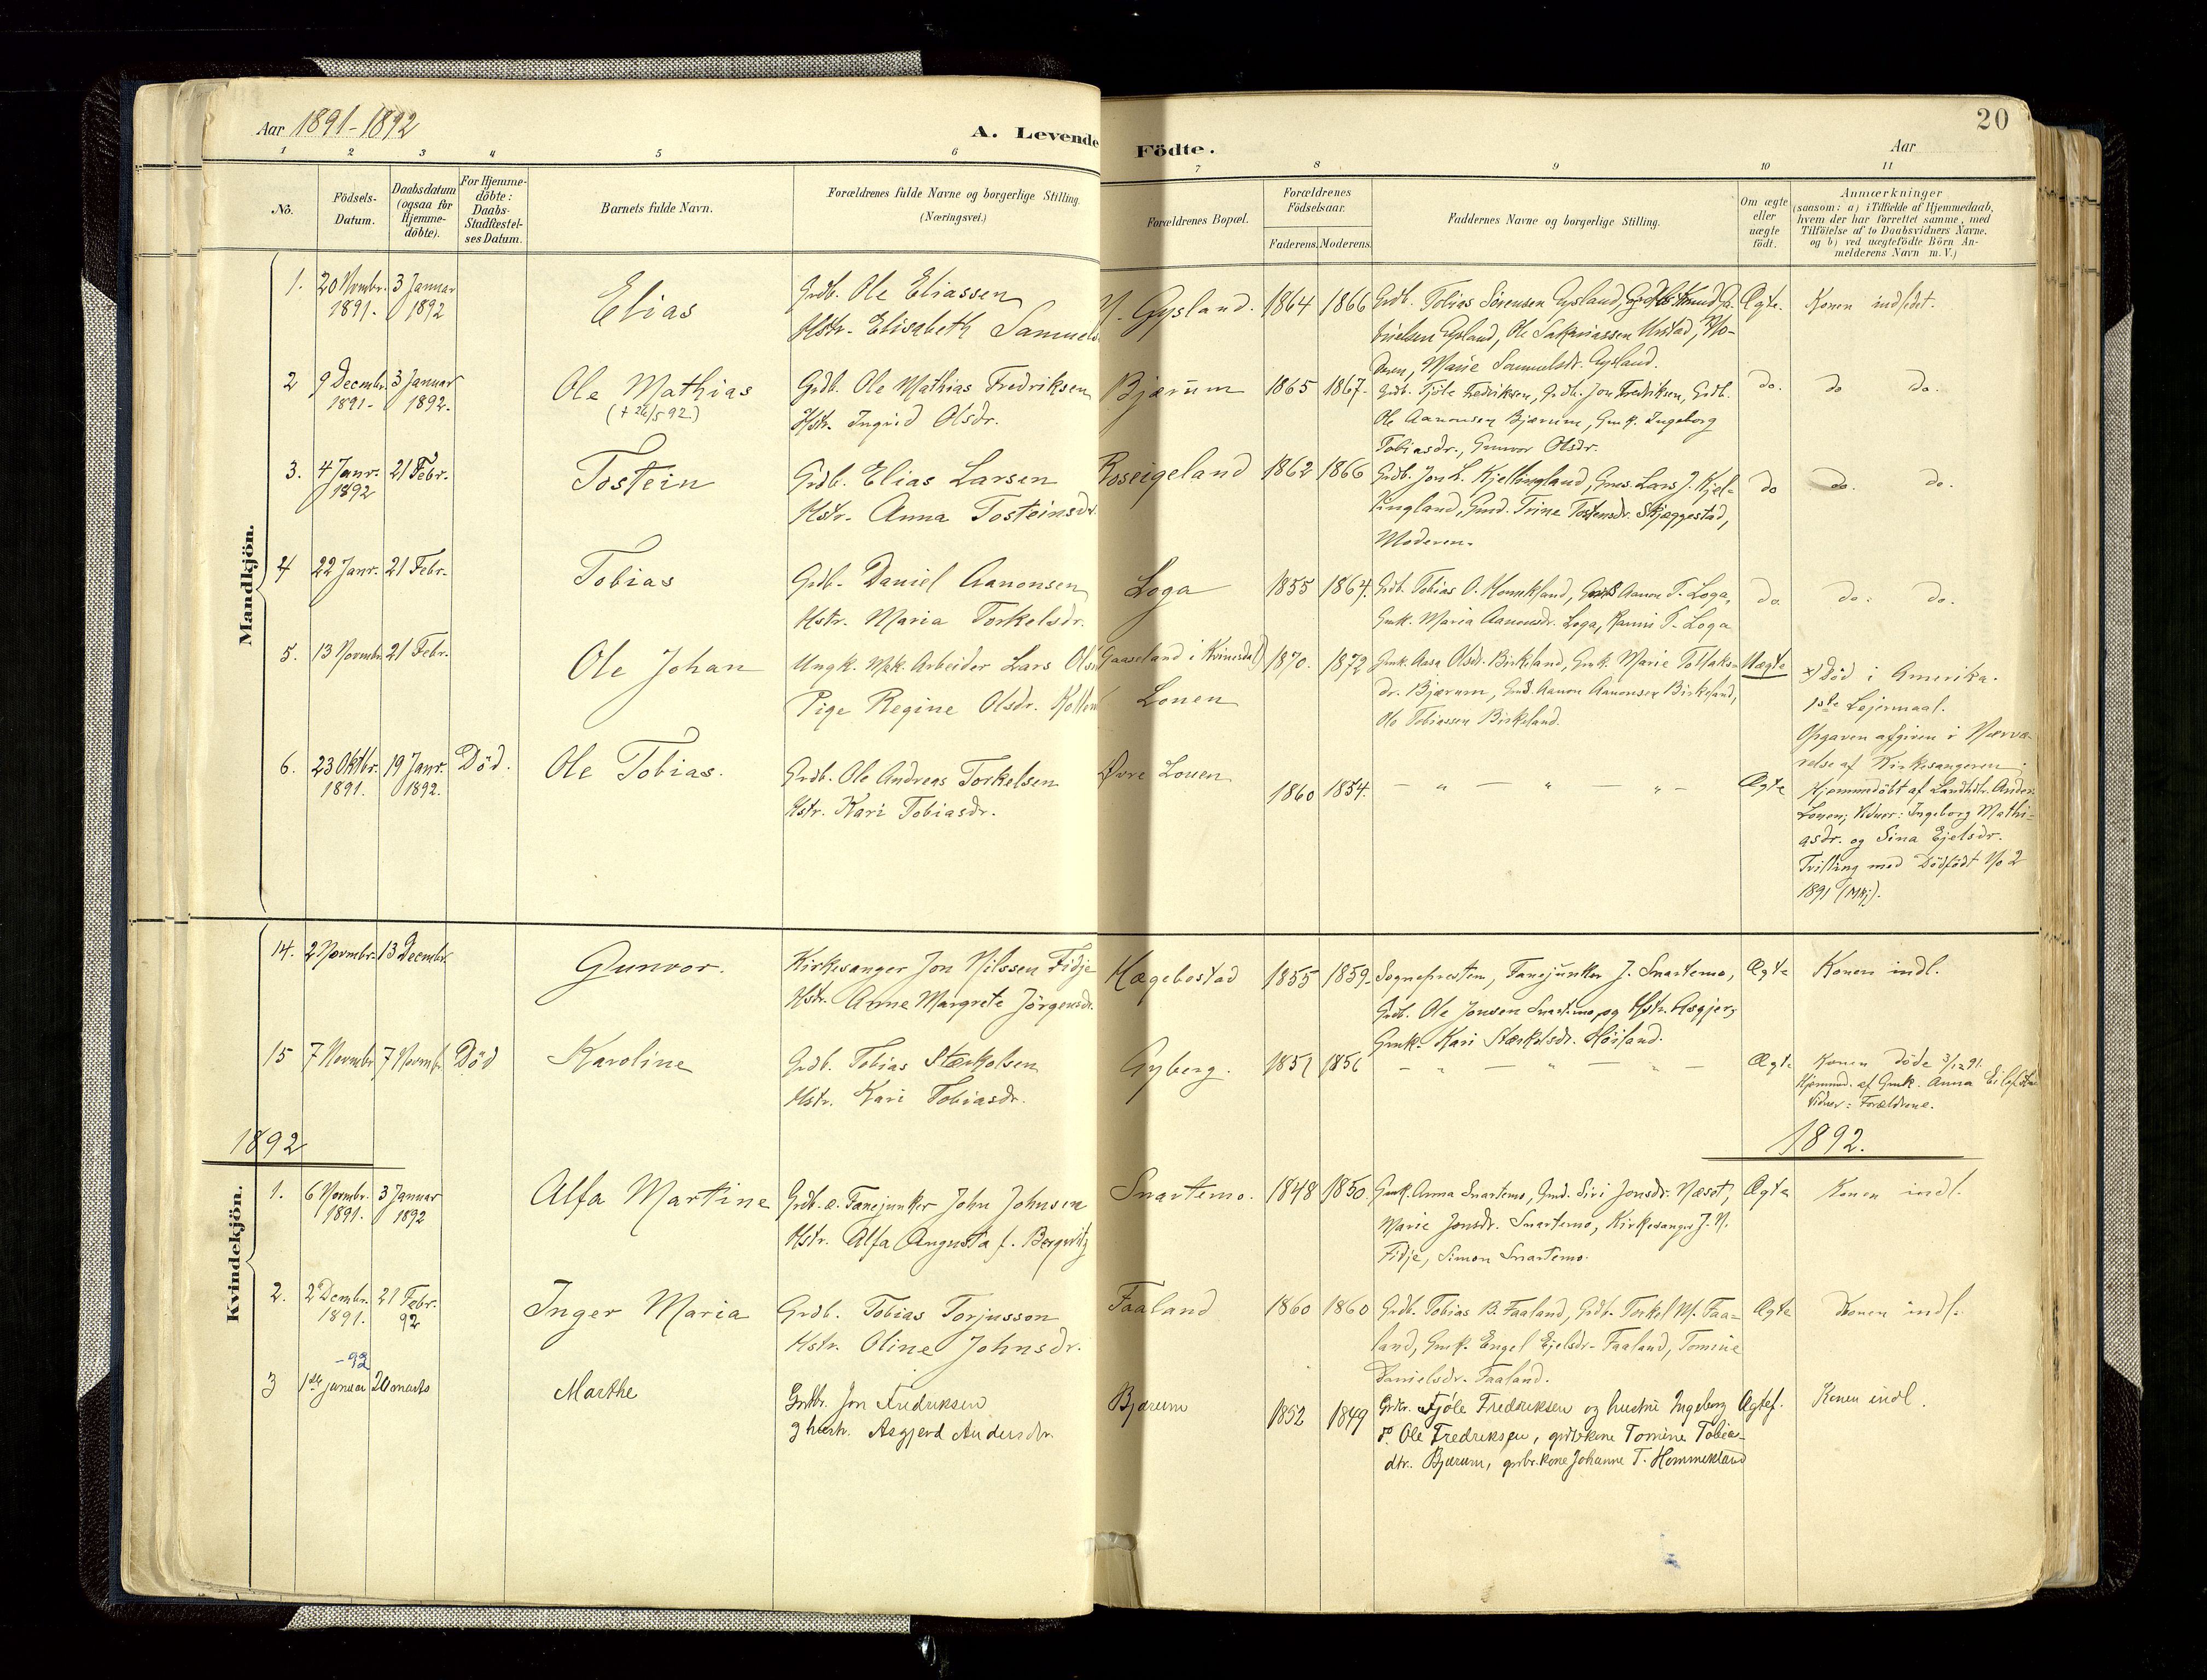 Aar 1891-1892
A. Levende Födte.
Aar
20
1 2 3 4 5 6 7 8 9 10 11
No.
Födsels-
Datum.
Daabsdatum
(ogsaa for
Hjemme-
döbte).
For Hjemme-
döbte:
Daabs-
Stadfæstel-
ses Datum.
Barnets fulde Navn.
Forældrenes fulde Navne og borgerlige Stilling.
(Næringsvei.)
Forældrenes Bopæl.
Forældrenes
Födselsaar.
Faderens. Moderens.
Faddernes Navne og borgerlige Stilling.
Om ægte
eller
uægte
födt.
Anmærkninger
(saasom: a) i Tilfælde af Hjemmedaab,
hvem der har forrettet samme, med
Tilföielse af to Daabsvidners Navne.
og b) ved uægtefödte Börn An-
melderens Navn m. V.)
Mandkjön.
1. 20 Novmbr. 1891. 3 Januar 1892
Elias
Grdb. Ole Eliassen
Hstr. Elisabeth Samuels
N. Gysland. 1864 1866
Grdb. Tobias Sörensen Gysland, Knud
Gysland, Ole Sakariassen Urstad, Mo-
deren, Marie Samuelsdr. Gysland.
Ægte. Konen indledet.
2 9 Decmbr. 1891- 3 Januar 1892.
Ole Mathias
(+ 24/5 92.)
Grdb. Ole Mathias Fredriksen
Hstr. Ingrid Olsdr.
Bjærum 1865 1867.
Grdb. Fjöle Fredriksen, Grdb. Jon Fredriksen, Grdb.
Ole Aanonsen Bjærum, Gmk. Ingeborg
Tobiasdr., Gunvor Olsdr.
do. do do.
3. 4 Janr. 1892 21 Febr.
Tostein
Grdb. Elias Larsen
Hstr. Anna Tosteinsdr.
Roseigeland 1862 1866
Grdb. Jon L. Kjellingland, Gms. Lars J. Kjel-
lingland, Gmd. Trine Tostensdr. Skjeggestad,
Moderen.
do do. do.
4 22 Janr. 21 Febr.
Tobias
Grdb. Daniel Aanonsen
Hstr. Maria Torkelsdr.
Loga 1855 1864.
Grdb. Tobias O. Homkland, Aanon T. Loga,
Gmk. Maria Aanonsdr. Loga, T. Loga
do. do. do.
5. 13 Novmbr. 21 Febr.
Ole Johan
Ungk. Arbeider Lars Ols
Pige Regine Olsdr.
Gaaseland i Kvinesdal)
Lonen
1870. 1872
Gmk. Aasa Olsdr. Birkeland, Gmk. Marie Tollaks-
dr. Bjærum, Gmd. Aanon Aanonsen Birkeland,
Ole Tobiassen Birkeland.
Uægte
x) Död i Amerika.
1ste Lejermaal.
Opgaven afgiven i Nærvæ-
relse af Kirkesangeren.
6. 23 Oktbr. 1891. 19 Janr. 1892. Död.
Ole Tobias.
Grdb. Ole Andreas Torkelsen
Hstr. Kari Tobiasdr.
Övre Lonen
1860 1854.
— „ — „ — „ —
Ægte
Hjemmedöbt af Landhdlr. Anders
Lonen; Vidner: Ingeborg Mathi-
asdr. og Sina Ejelsdr.
Tvilling med Dödfödt No 2
1891 (Mkj).
14. 2 Novmbr. 13 Decmbr.
Gunvor.
Kirkesanger Jon Nilssen Fidje
Hstr. Anne Margrete Jörgensdr.
Hægebostad 1855 1859.
Sognepresten, Fanejunker J. Snartemo,
Grdb. Ole Jonsen Snartemo og Hstr. Asgjer,
Gmk. Kari Stærkelsdr. Höiland.
Ægte Konen indl.
15 7 Novmbr. 7 Novmbr. Död
Karoline
Grdb. Tobias Stærkelsen
Hstr. Kari Tobiasdr.
Gyberg. 1851 1856
— „ — „ — „ —
Ægte
Konen döde 3/12 91.
Hjemmed. af Gmk. Anna
Vidner: Forældrene.
1892
1892.
Kvindekjön.
1. 6 Novmbr. 1891. 3 Januar 1892
Alfa Martine
Grdb. o. Fanejunker John Johnsen
Hstr. Alfa Augusta f. Bergwitz
Snartemo. 1848 1850.
Gmk. Anna Snartemo, Gmd. Siri Jonsdr. Næset,
Marie Jonsdr. Snartemo, Kirkesanger J. N.
Fidje, Simon Snartemo.
Ægte Konen indl.
2. 2 Decmbr. 1891. 21 Febr. 92
Inger Maria
Grdb. Tobias Torjusson
Hstr. Oline Johnsdr.
Faaland 1860 1860
Grdb. Tobias B. Faaland, Grdb. Torkel M. Faa-
land, Gmk. Engel Ejelsdr. Faaland, Tomine
Danielsdr. Faaland.
Ægte Konen indl.
-92
3 1ste januar 20 marts
Marthe
Grdbr. Jon Fredriksen
og hustr. Asgjerd Andersdtr.
Bjærum 1852 1849
Grbr. Fjöle Fredriksen og hustru Ingeborg
do Ole Fredriksen, grdbrkone Tomine Tobias-
dtr. Bjærum, grbr.kone Johanne T. Hommekland
Ægtef. Konen indl.